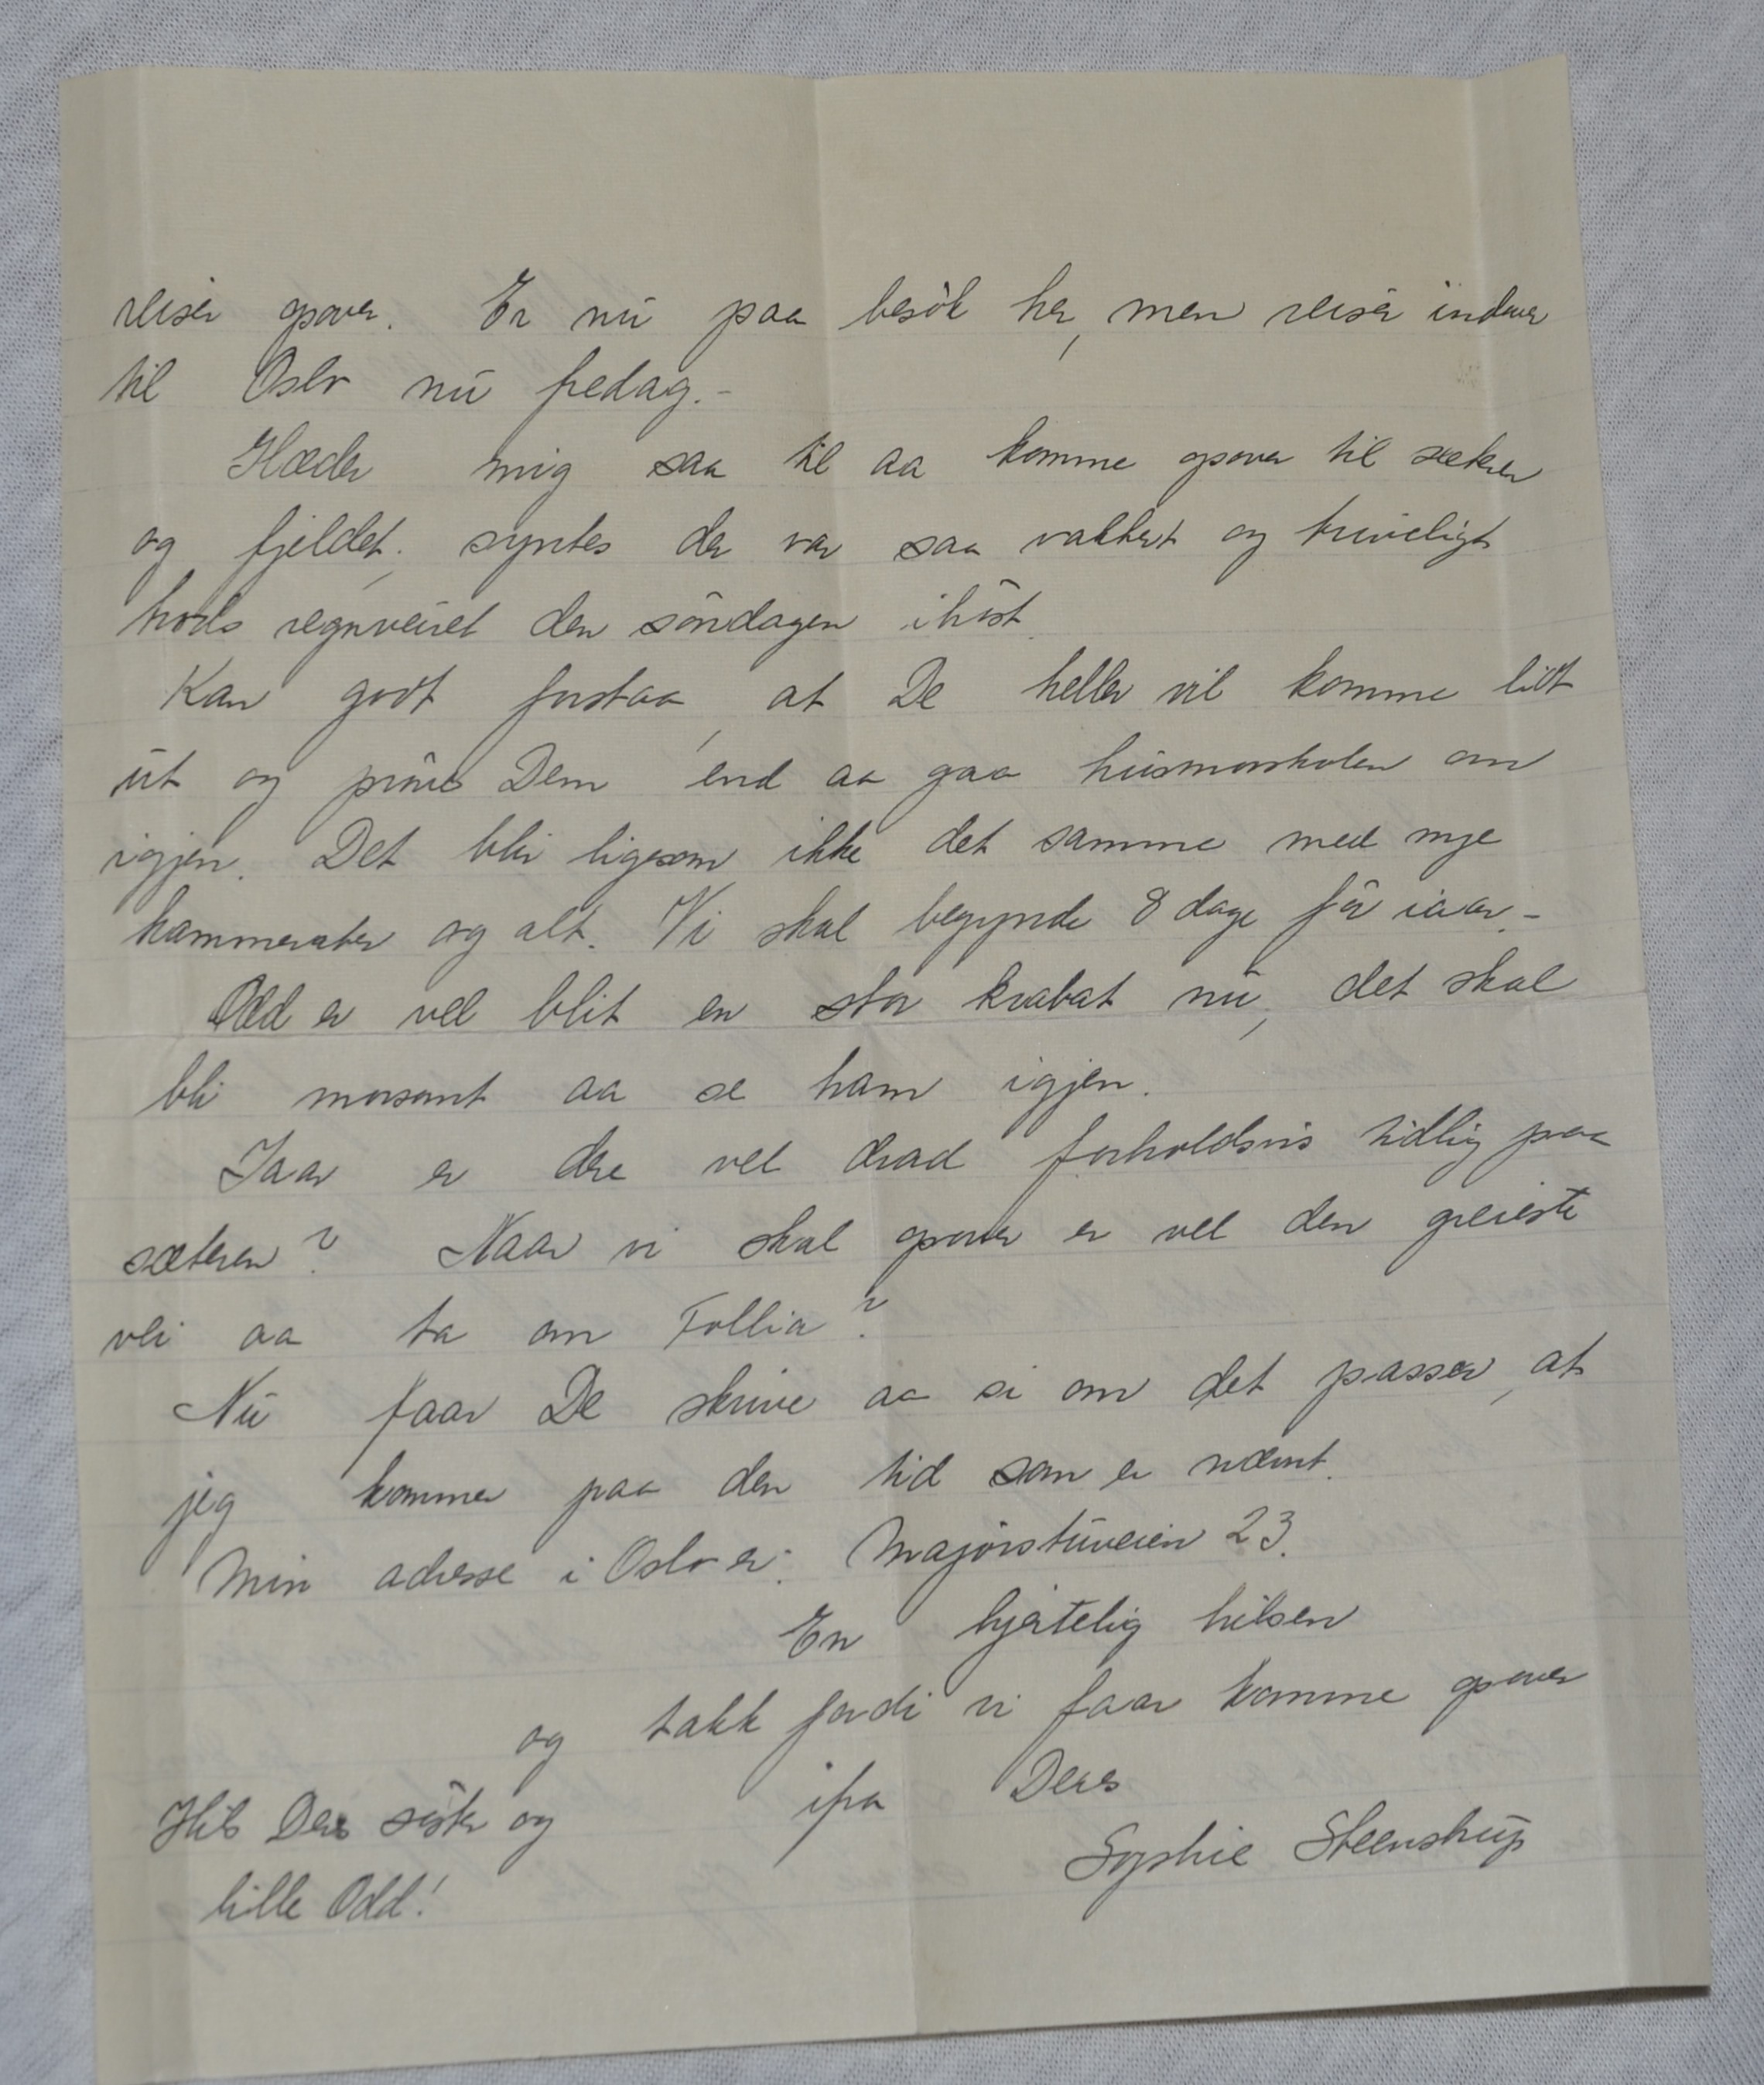 reiser opover. Er nu paa besök her, men reiser indover
til Oslo nu fredag.-
Glæder mig saa til aa komme opover til sæteren
og fjeldet, syntes der var saa vakkert og triveligt
trods regnveiret den söndagen ihöst.
Kan godt forstaa, at De heller vil komme lidt
ut og pröve Dem end aa gaa husmorskolen om
igjen. Det blir ligesom ikke det samme med nye
kammerater og alt. Vi skal begynde 8 dage för iaar.-
Odd er vel blit en stor krabat nu, det skal
bli morsomt aa se ham igjen.
Iaar er dere vel drad forholdsvis tidlig paa
sæteren? Naar vi skal opover er vel den greieste
vei aa ta om Follia?
Nu faar De skrive aa si om det passer, at
jeg kommer paa den tid som er nævnt.
Min adresse i Oslo er: Majorstuveien 23.
En hjertelig hilsen
og takk fordi vi faar komme opover
ifra Deres
Sophie Steenstrup
Hils Deres söster og
lille Odd!